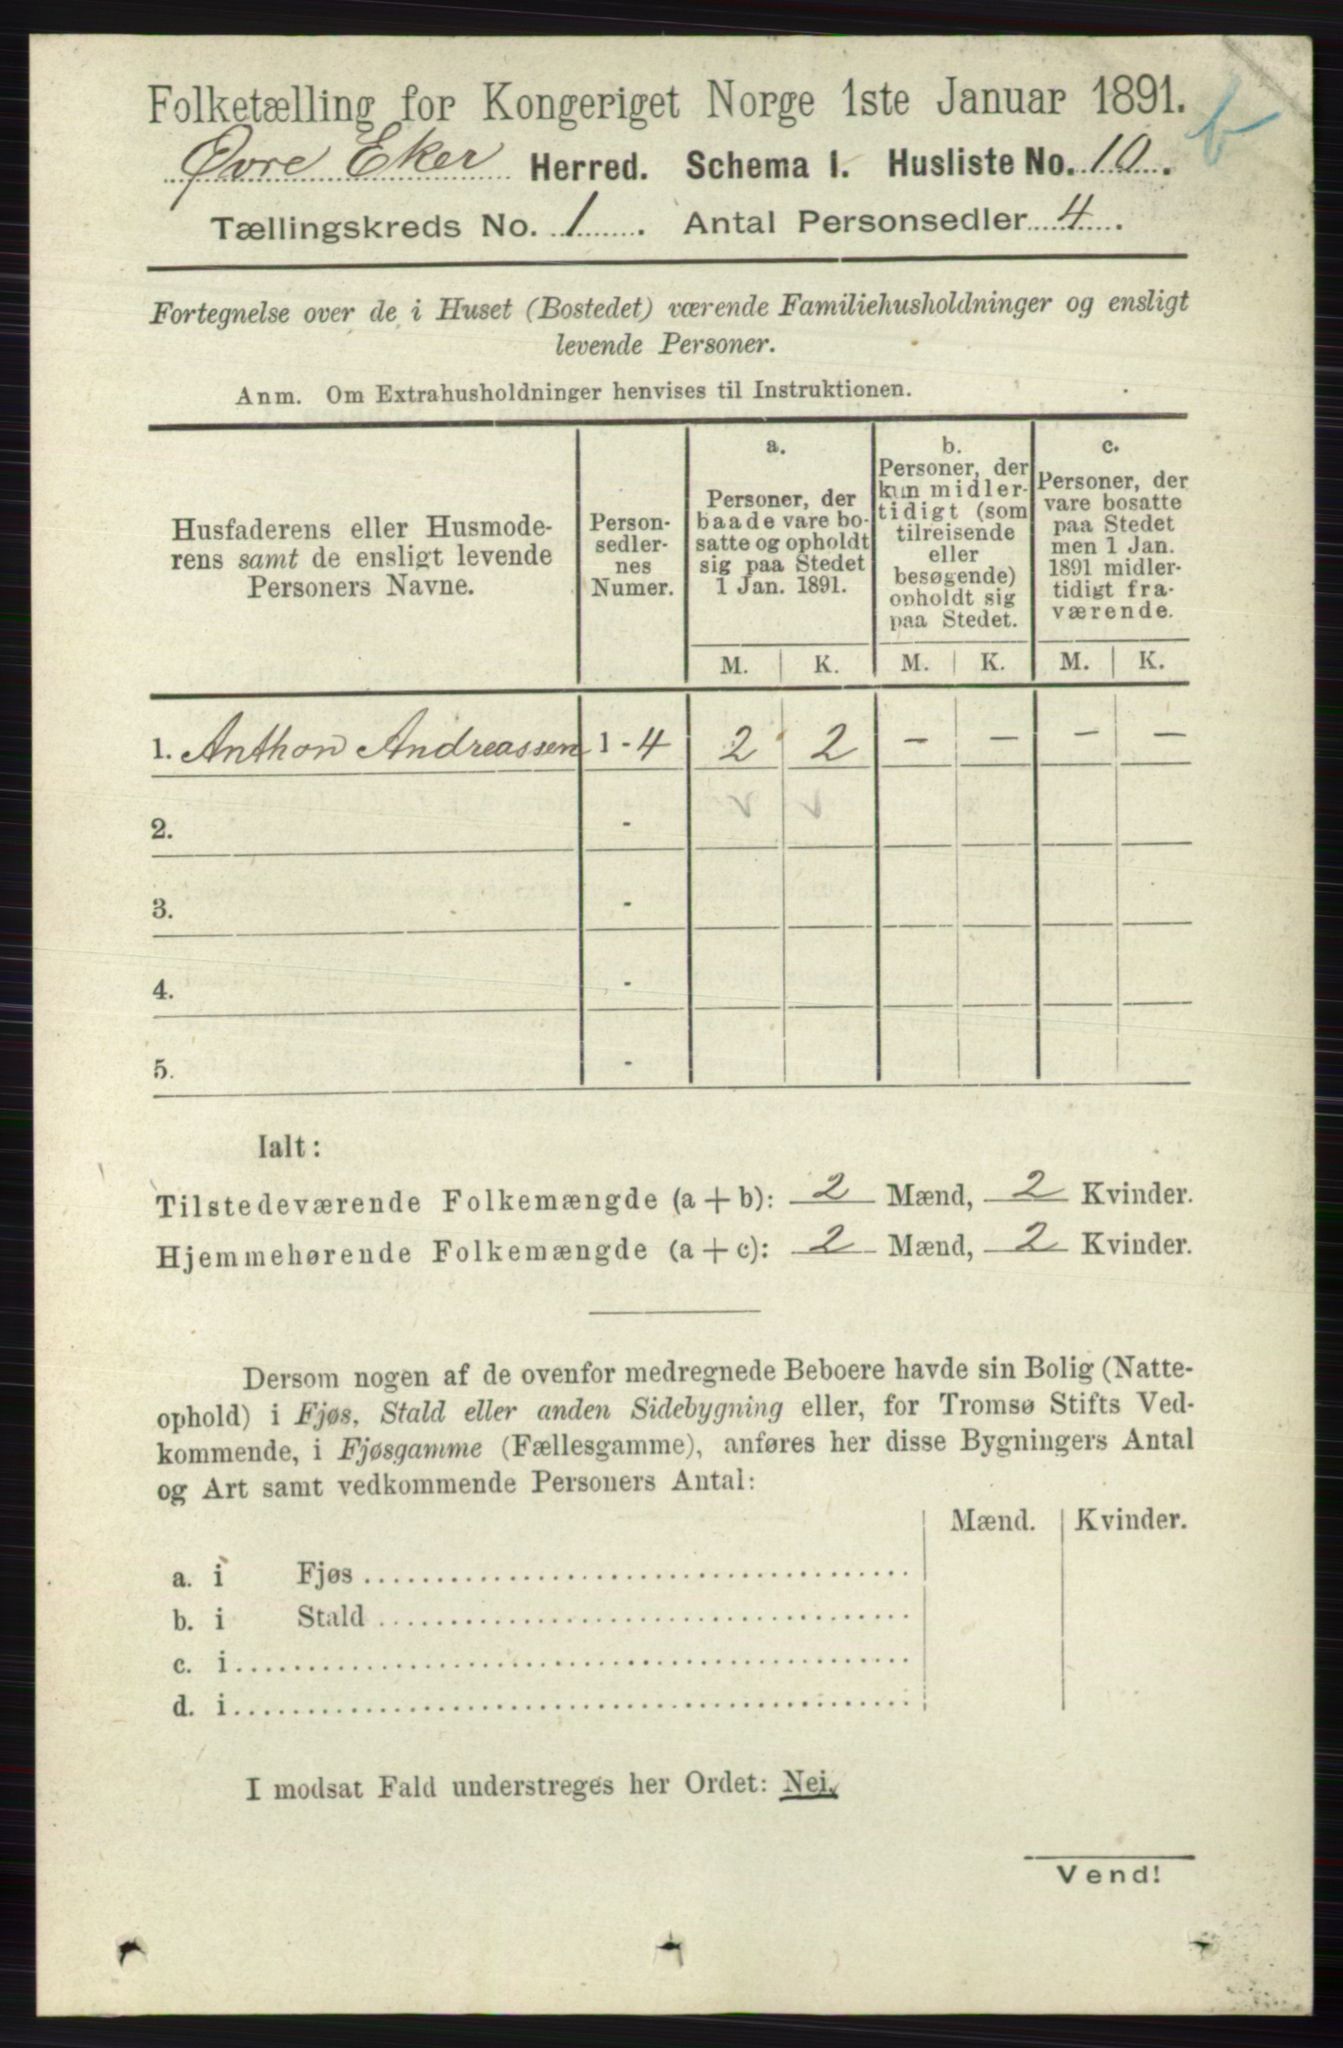 Folketælling for Kongeriget Norge 1ste Januar 1891.
b
Øvre Eker Herred. Schema I. Husliste No. 10.
Tællingskreds No. 1. Antal Personsedler 4.
Fortegnelse over de i Huset (Bostedet) værende Familiehusholdninger og ensligt
levende Personer.
Anm. Om Extrahusholdninger henvises til Instruktionen.
Husfaderens eller Husmode-
rens samt de ensligt levende
Personers Navne.
Person-
sedler-
nes
Numer.
a.
Personer, der
baade vare bo-
satte og opholdt
sig paa Stedet
1 Jan. 1891.
b.
Personer, der
kun midler-
tidigt (som
tilreisende
eller
besøgende)
opholdt sig
paa Stedet.
c.
Personer, der
vare bosatte
paa Stedet
men 1 Jan.
1891 midler-
tidigt fra-
værende.
M. K. M. K. M. K.
1. Anthon Andreassen 1 - 4 2 2 - - - -
2. - v v
3. -
4. -
5. -
Ialt:
Tilstedeværende Folkemængde (a + b): 2 Mænd, 2 Kvinder.
Hjemmehørende Folkemængde (a + c): 2 Mænd, 2 Kvinder.
Dersom nogen af de ovenfor medregnede Beboere havde sin Bolig (Natte-
ophold) i Fjøs, Stald eller anden Sidebygning eller, for Tromsø Stifts Ved-
kommende, i Fjøsgamme (Fællesgamme), anføres her disse Bygningers Antal
og Art samt vedkommende Personers Antal:
Mænd. Kvinder.
a. i Fjøs
b. i Stald
c. i
d. i
I modsat Fald understreges her Ordet: Nei.
Vend!